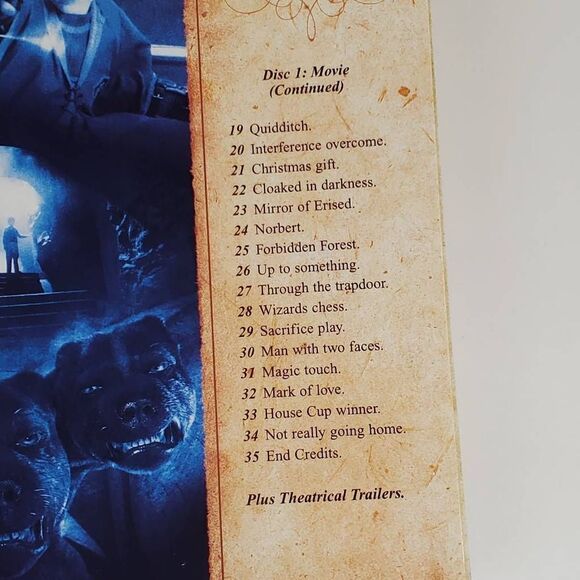 Disc 1: Movie
(Continued)
19 Quidditch.
20 Interference overcome.
21 Christmas gift.
22 Cloaked in darkness.
23 Mirror of Erised.
24 Norbert.
25 Forbidden Forest.
26 Up to something.
27 Through the trapdoor.
28 Wizards chess.
29 Sacrifice play.
30 Man with two faces.
31 Magic touch.
32 Mark of love.
33 House Cup winner.
34 Not really going home.
35 End Credits.
Plus Theatrical Trailers.